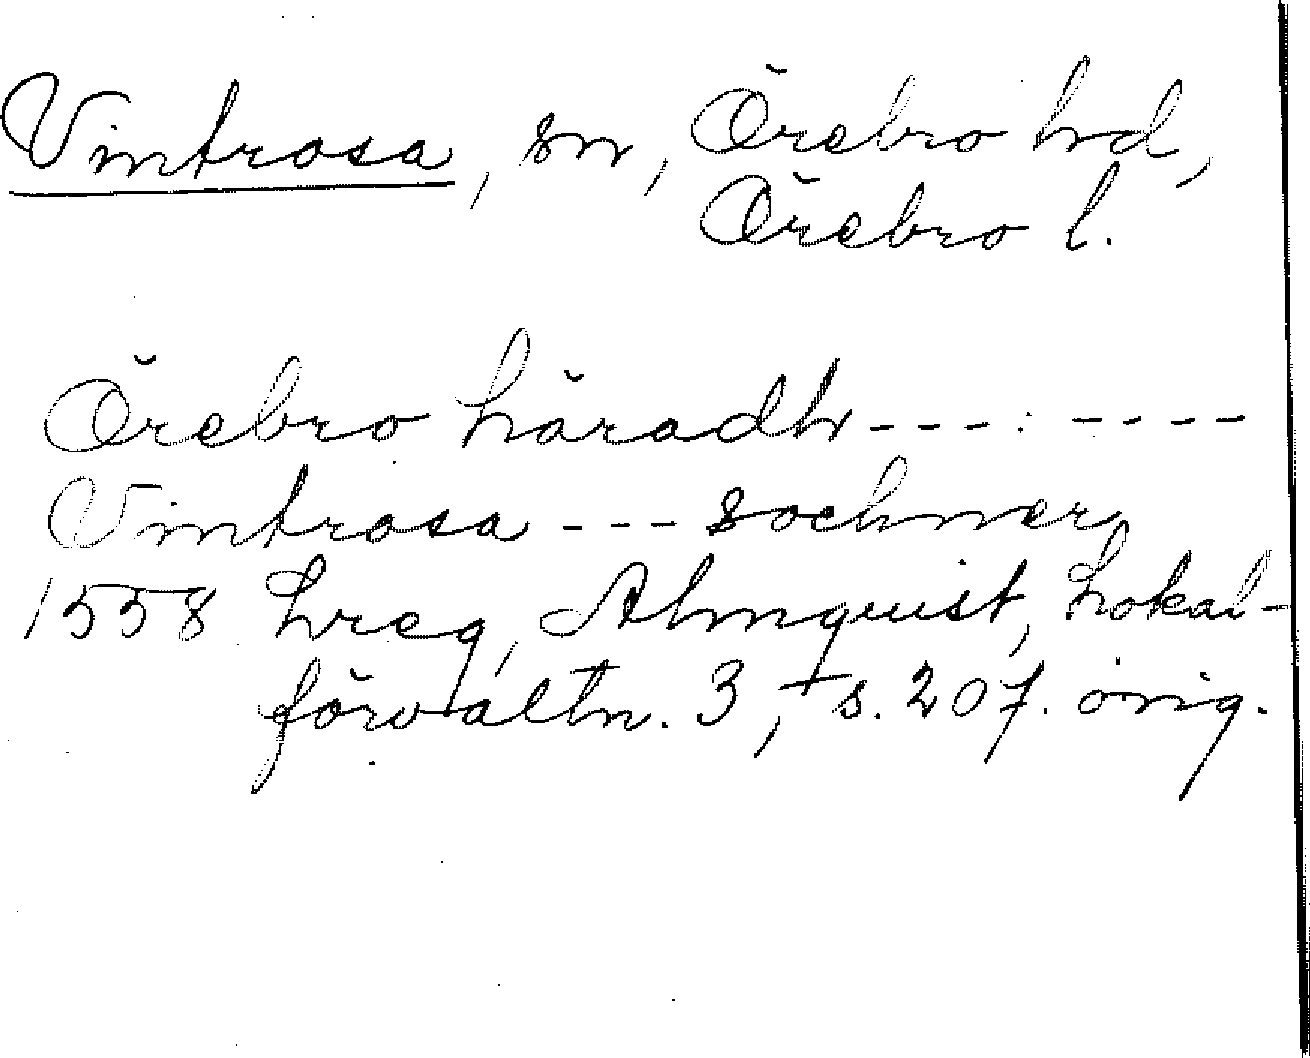 Vintrosa, sn, Örebro hd,
Örebro l.
Örebro häradh ---: ----
Vintrosa --- sochner
1558 hreg, Almquist, Lokal-
förvaltn. 3, s. 207. orig.